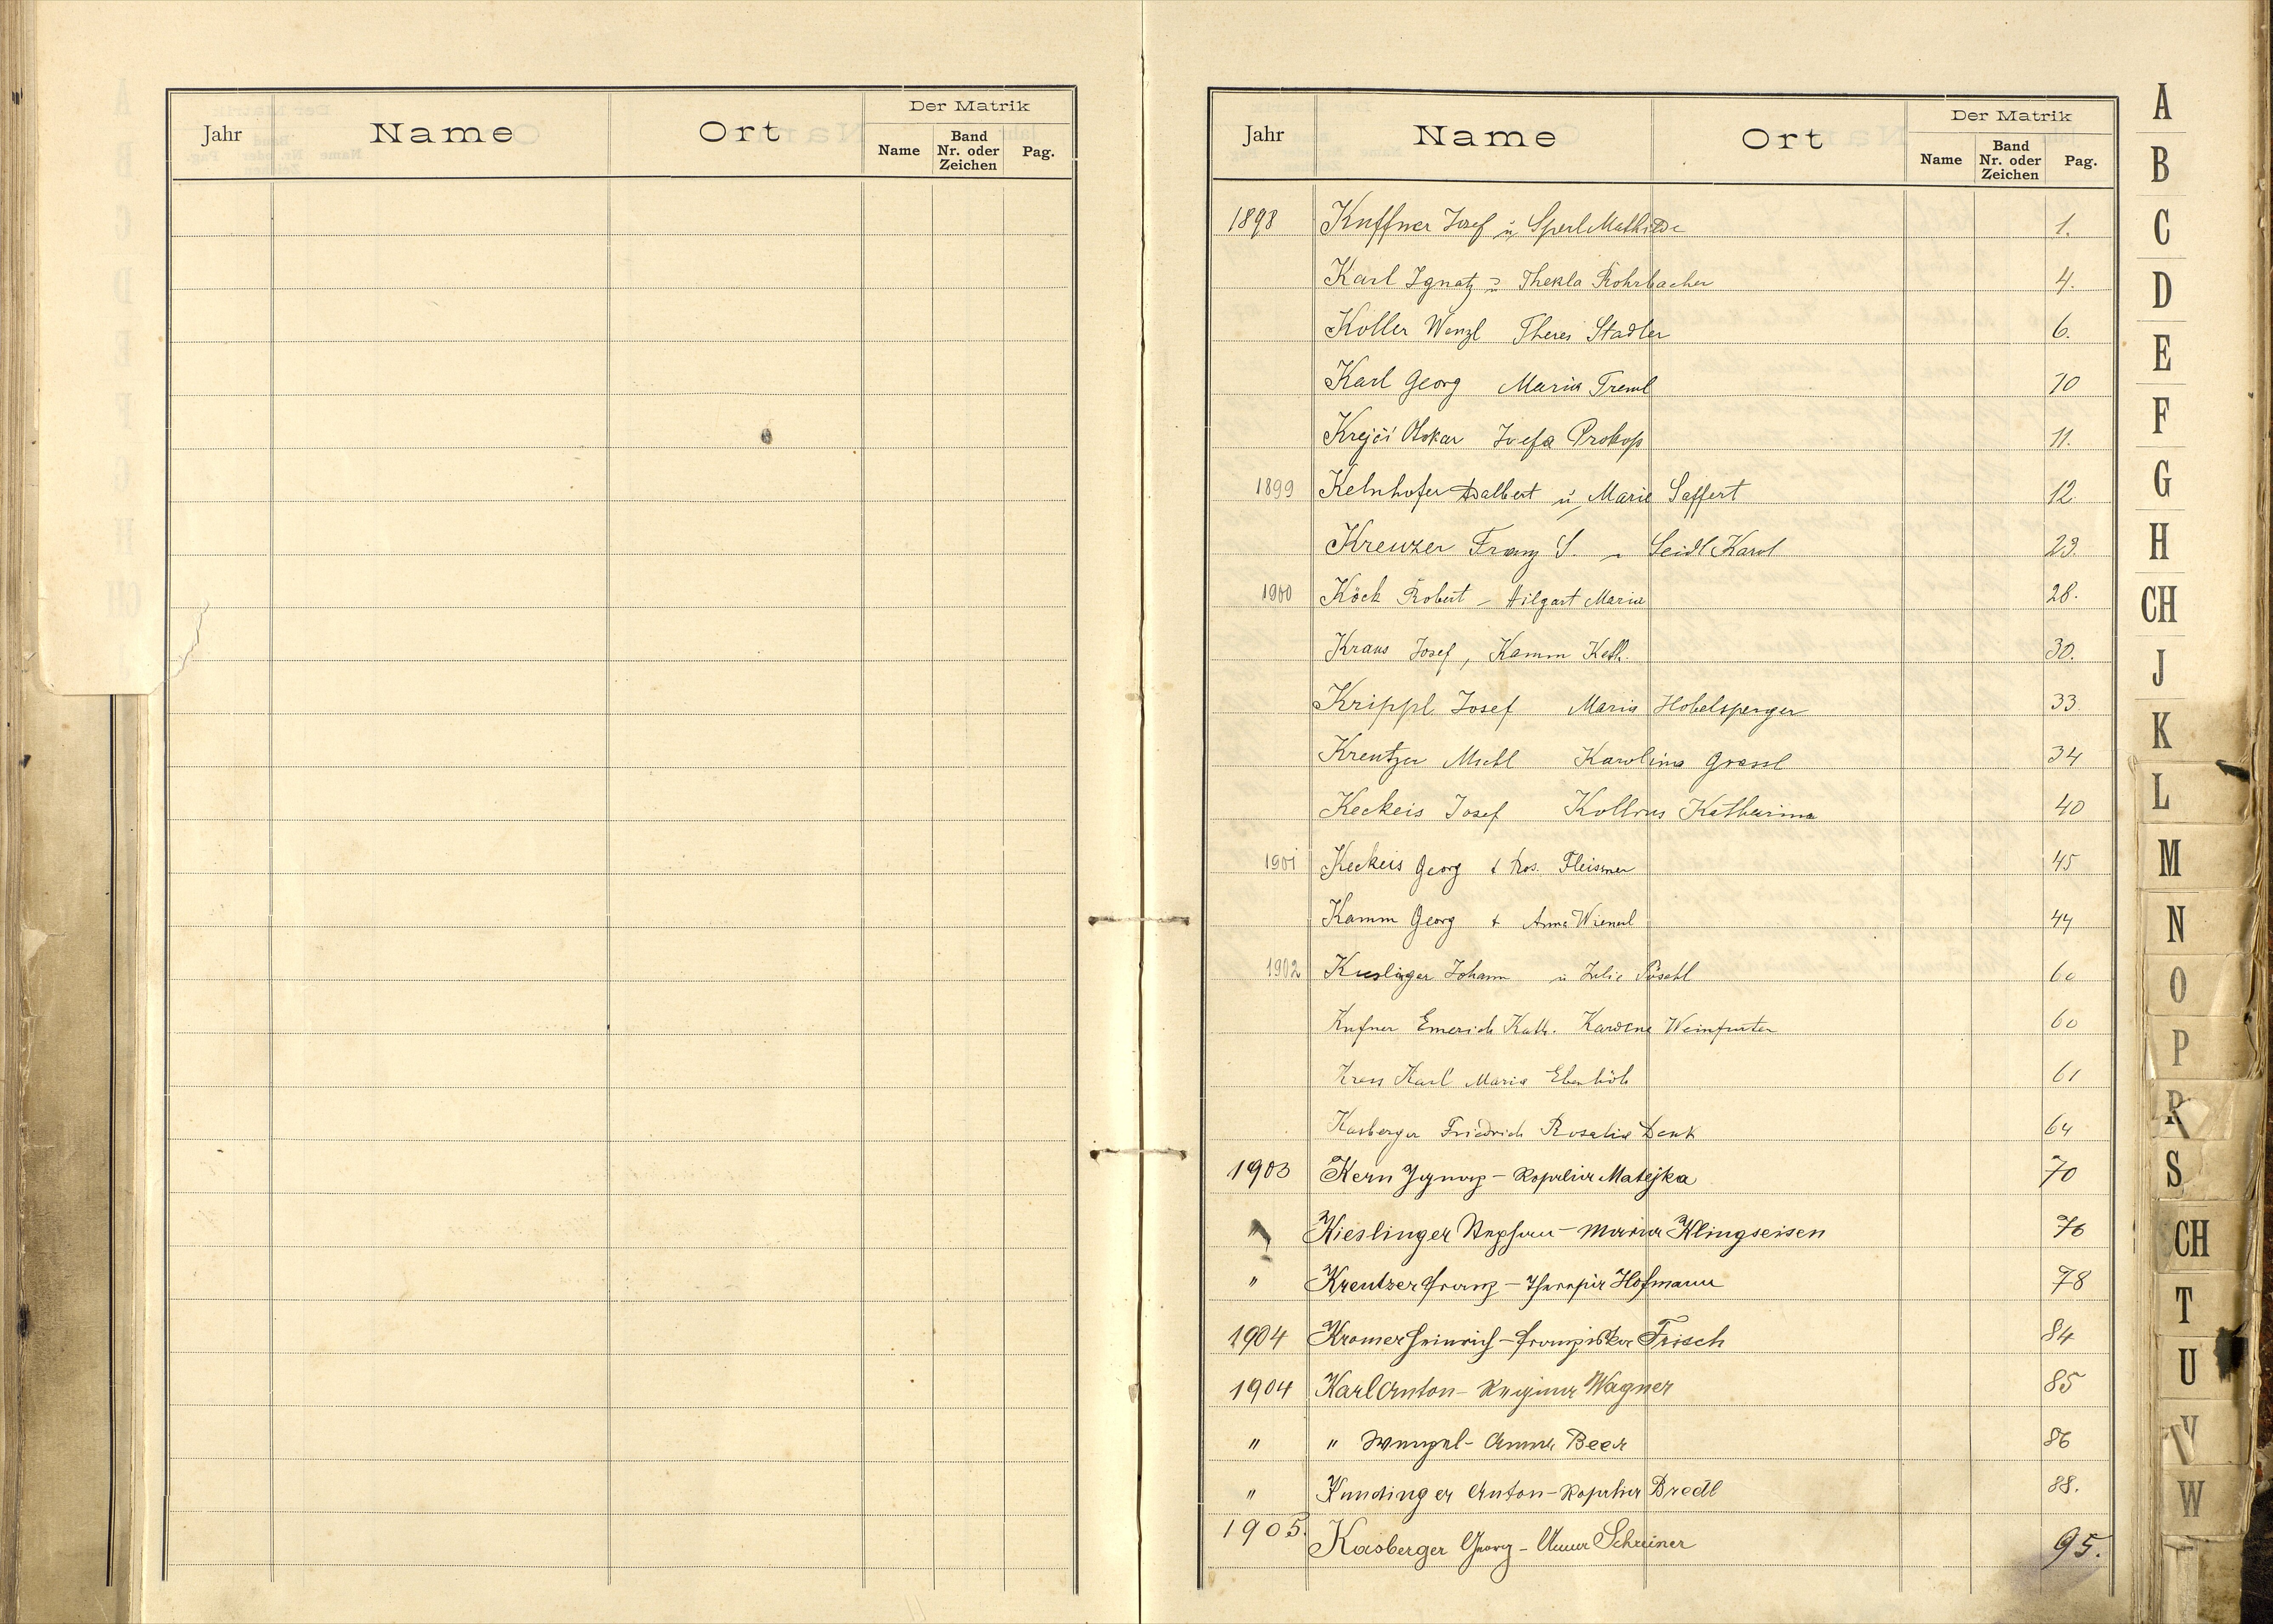 Der Matrik
Jahr Name Ort Name Band Nr. oder Zeichen Pag.
Der Matrik
Jahr Name Ort Name Band Nr. oder Zeichen Pag.
1898 Kuffner Josef u. Sperl Mathilde 1.
Karl Ignatz u Thekla Rohrbacher 4.
Koller Wenzl Theres Stadler 6.
Karl Georg Maria Treml 10
Krejčí Otokar Josefa Prokop 11.
1899 Kelnhofer Adalbert u. Marie Saffert 12
Kreuzer Franz S. u Seidl Karol 23.
1900 Köck Robert – Hilgart Maria 28.
Kraus Josef, Kamm Kath. 30.
Krippl Josef Maria Hobelsperger 33.
Kreutzer Michl Karolina Grassl 34
Keckeis Josef Kollros Katharina 40
1901 Keckeis Georg & Ros. Fleissner 45
Kamm Georg & Anna Wienerl 44
1902 Kieslinger Johann u Julie Pöschl 60
Kufner Emerich Kath. Weinfurter 60
Kress Karl Maria Ebenhöh 61
Kasberger Friedrich Rosalia Denk 64
1903 Kern Ignaz – Rosalia Matejka 70
" Kieslinger Stephan – Maria Klingseisen 76
" Kreutzer Franz – Theresia Hofmann 78
1904 Kromer Heinrich – Franziska Frisch 84
1904 Karl Anton – Regina Wagner 85
" " Wenzel – Anna Beer 86
" Kundinger Anton – Rosalia Bredl 88.
1905. Kasberger Georg – Anna Schreiner 95.
A
B
C
D
E
F
G
H
CH
J
K
L
M
N
O
P
R
S
CH
T
U
V
W